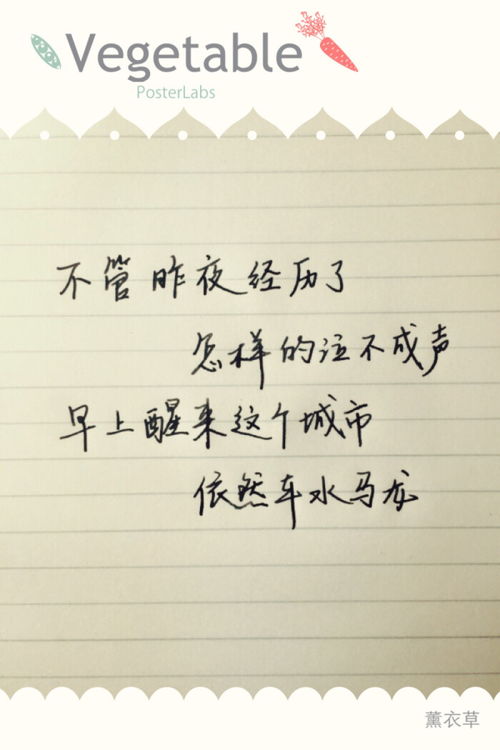 Vegetable
PosterLabs
不管昨夜经历了
怎样的泣不成声
早上醒来这个城市
依然车水马龙
薰衣草